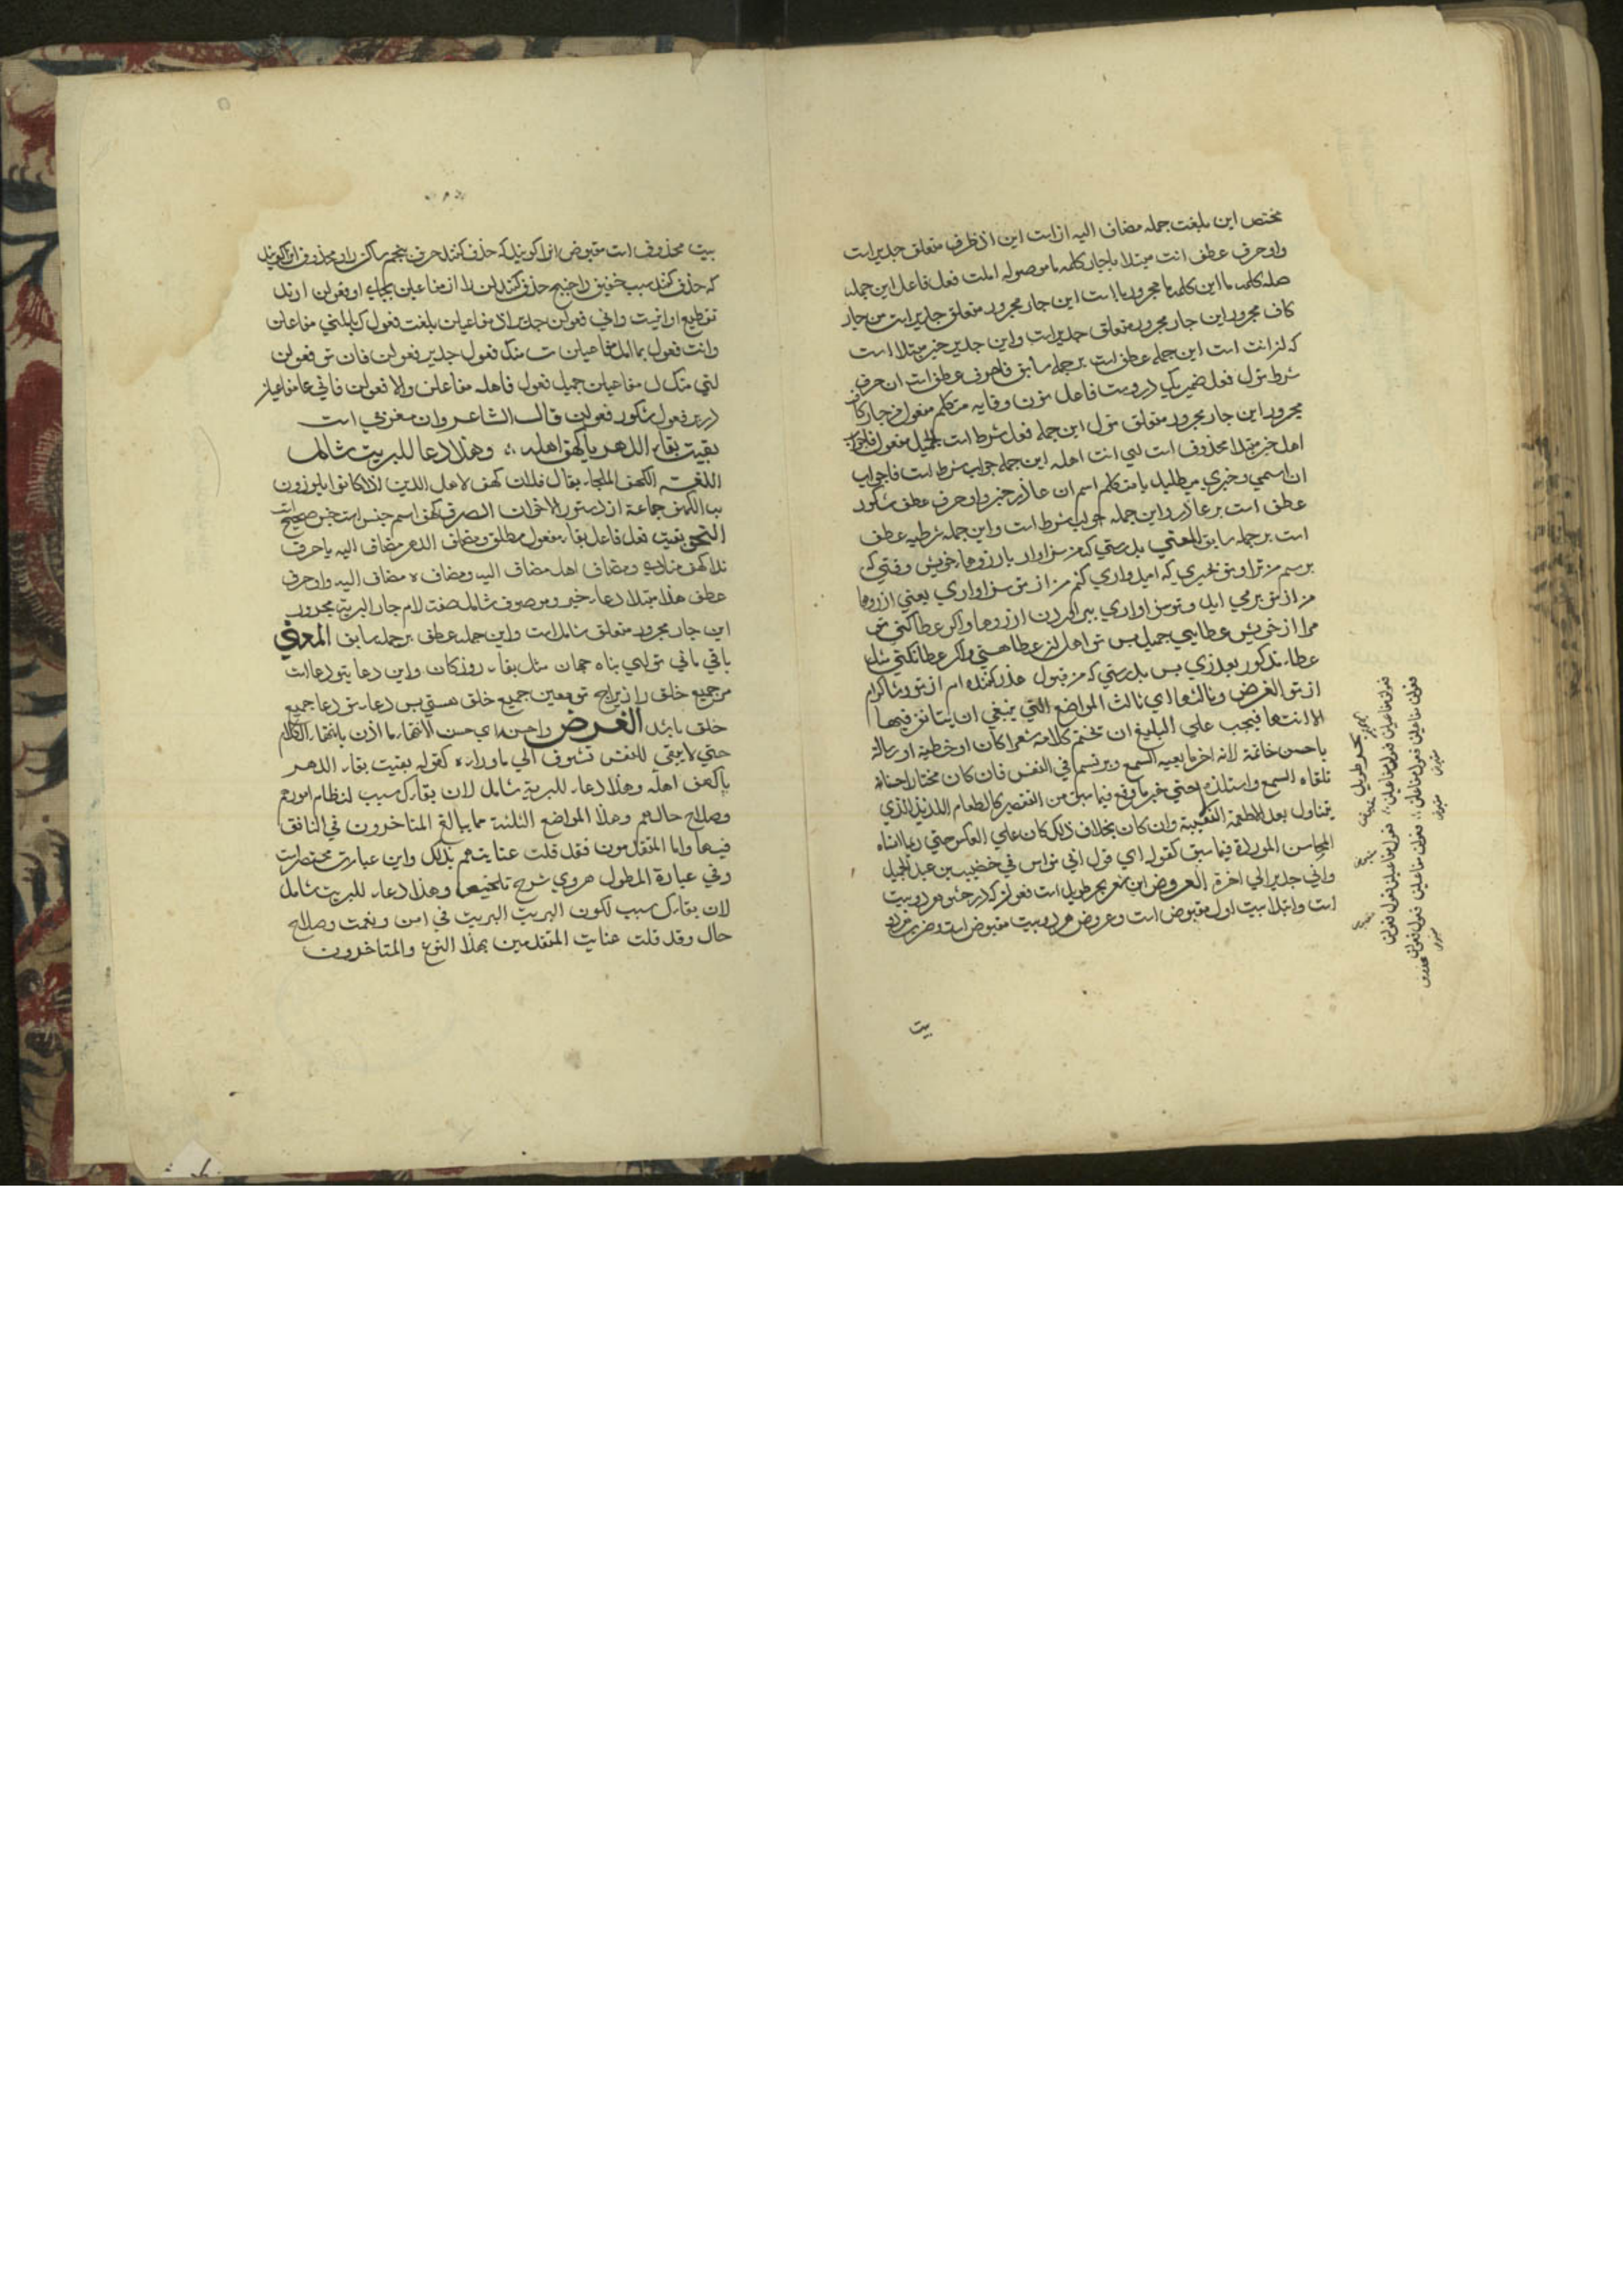 مختص این بلغت جمله مضاف الیه اذ است این اذ ظرف متعلق جدیر است
واو حرف عطف انت مبتدا با جار کلمه ما موصوله املت فعل فاعل این جمله
صله کلمه ما این کلمه ما مجرور با است این جار مجرور متعلق جدیر است من جار
کاف مجرور این جار مجرور متعلق جدیر است واین جدیر خبر مبتدا است
که لز انت است این جمله عطف است بر جمله سابق فا حرف عطف است ان حرف
شرط تول فعل ضمیر یک دروست فاعل نون وقایه متکلم مفعول من جار کاف
مجرور این جار مجرور متعلق تول این جمله فعل شرط است الجمیل مفعول فا جواب
اهل خبر مبتدا محذوف است لیی انت اهله این جمله جواب شرط است فا جواب
ان اسمی وخبری میطلبد یا متکلم اسم ان عاذر خبر واو حرف عطف شکور
عطف است بر عاذر واین جمله جواب شرط است واین جمله شرطیه عطف
است بر جمله سابق المعنی بدرستی که من سزاوار بارزوهاء خویش وقتی که
برسم من ترا وبتو نخیری که امیدواری کنم من از تو سزاواری یعنی ازروها
من از تو برمی اید وتو سزاواری ببر اوردن ازروها واکر عطا کنی تو
مرا از خویش عطایی جمیل پس تو اهل لنز عطا هستی واکر عطا نکنی مثل
عطاء مذکور بعذری پس بدرستی که من قبول عذر کننده ام از تو وشاکرام
از تو الغرض وثالثها ای ثالث المواضع التی ینبغی ان یتانق فیها
الانتها فیجب علی البلیغ ان یختم کلامه شعرا کان او خطبة او رسالة
باحسن خاتمة لانه اخر ما یعیه السمع ویرتسم فی النفس فان کان مختارا حسنا
تلقاه السمع واستلذه حتی جبر ما وقع فیما سبق من التقصیر کالطعام اللذیذ الذی
یتناول بعد الاطعمة التفهة وان کان بخلاف ذلک کان علی العکس حتی ربما انساه
المحاسن الموردة فیما سبق کقوله ای قول ابی نواس فی خضیب بن عبد الحمید
وانی جدیر الی اخره العروض این شعر بحر طویل است فعولن که در حشو هر دو بیت
است وابتدا بیت اول مقبوض است وعروض هر دو بیت مقبوض است وضرب هر دو
بیت
بحر طویل
فعولن مفاعیلن فعولن مفاعیلن
فعولن مفاعیلن فعول فعولن
فعولن مفاعیلن فعول مفاعلن
فعولن مفاعیلن فعول فعولن
مقبوض
مقبوض
محذوف
بیت محذوف است مقبوض انرا کویند که حذف کنند حرف پنجم ساکن را ومحذوف انرا کویند
که حذف کنند سبب خفیف را چنانچه حذف کنند لن را از مفاعیلن بجای او فعولن ارند
تقطیع او انیست وانی فعولن جدیر اذ مفاعیلن بلغت فعول ک بالمنی مفاعلن
وانت فعول بما امل مفاعیلن ت منک فعول جدیر فعولن فان تو فعولن
لنی منک ل مفاعیلن جمیل فعول فاهله مفاعلن والا فعولن فانی عا مفاعیلن
ذر و فعول شکور فعولن قال الشاعر وان معزی است
بقیت بقاء الدهر یا کهف اهله ؛ وهذا دعا للبریت شامل
اللغت الکهف الملجاء یقال فلان کهف لاهل الدین اذا کانوا یلوزون
به الکهف جماعة از دستور الاخوان الصرف کهف اسم جنس است جنس صحیح است
النحو بقیت فعل فاعل بقاء مفعول مطلق ومضاف الدهر مضاف الیه یا حرف
ندا کهف منادی ومضاف اهل مضاف الیه ومضاف ه مضاف الیه واو حرف
عطف هذا مبتدا دعاء خبر وموصوف شامل صفت لام جار البریة مجرور
این جار مجرور متعلق شامل است واین جمله عطف بر جمله سابق المعنی
باقی مانی تو ای پناه جهان مثل بقاء روزکان واین دعا بتو دعا است
مر جمیع خلق را زیراچه تو معین جمیع خلق هستی پس دعاء تو دعا جمیع
خلق باشد الغرض واحسنه ای حسن الانتهاء ما اذن بانتهاء الکلام
حتی لا یبقی للنفس تشوف الی ما وراءه کقوله بقیت بقاء الدهر
یا کهف اهله وهذا دعاء للبریة شامل لان بقاءک سبب لنظام امورهم
وصلاح حالهم وهذا المواضع الثلثة مما یبالغ المتاخرون فی التانق
فیها واما المتقدمون فقد قلت عنایتهم بذلک واین عبارت مختصر است
وفی عبارة المطول هروی شرح تلخیص وهذا دعاء للبریت شامل
لان بقاءک سبب لکون البریت البریت فی امن ونعمت وصلاح
حال وقد قلت عنایت المتقدمین بهذا النوع والمتاخرون